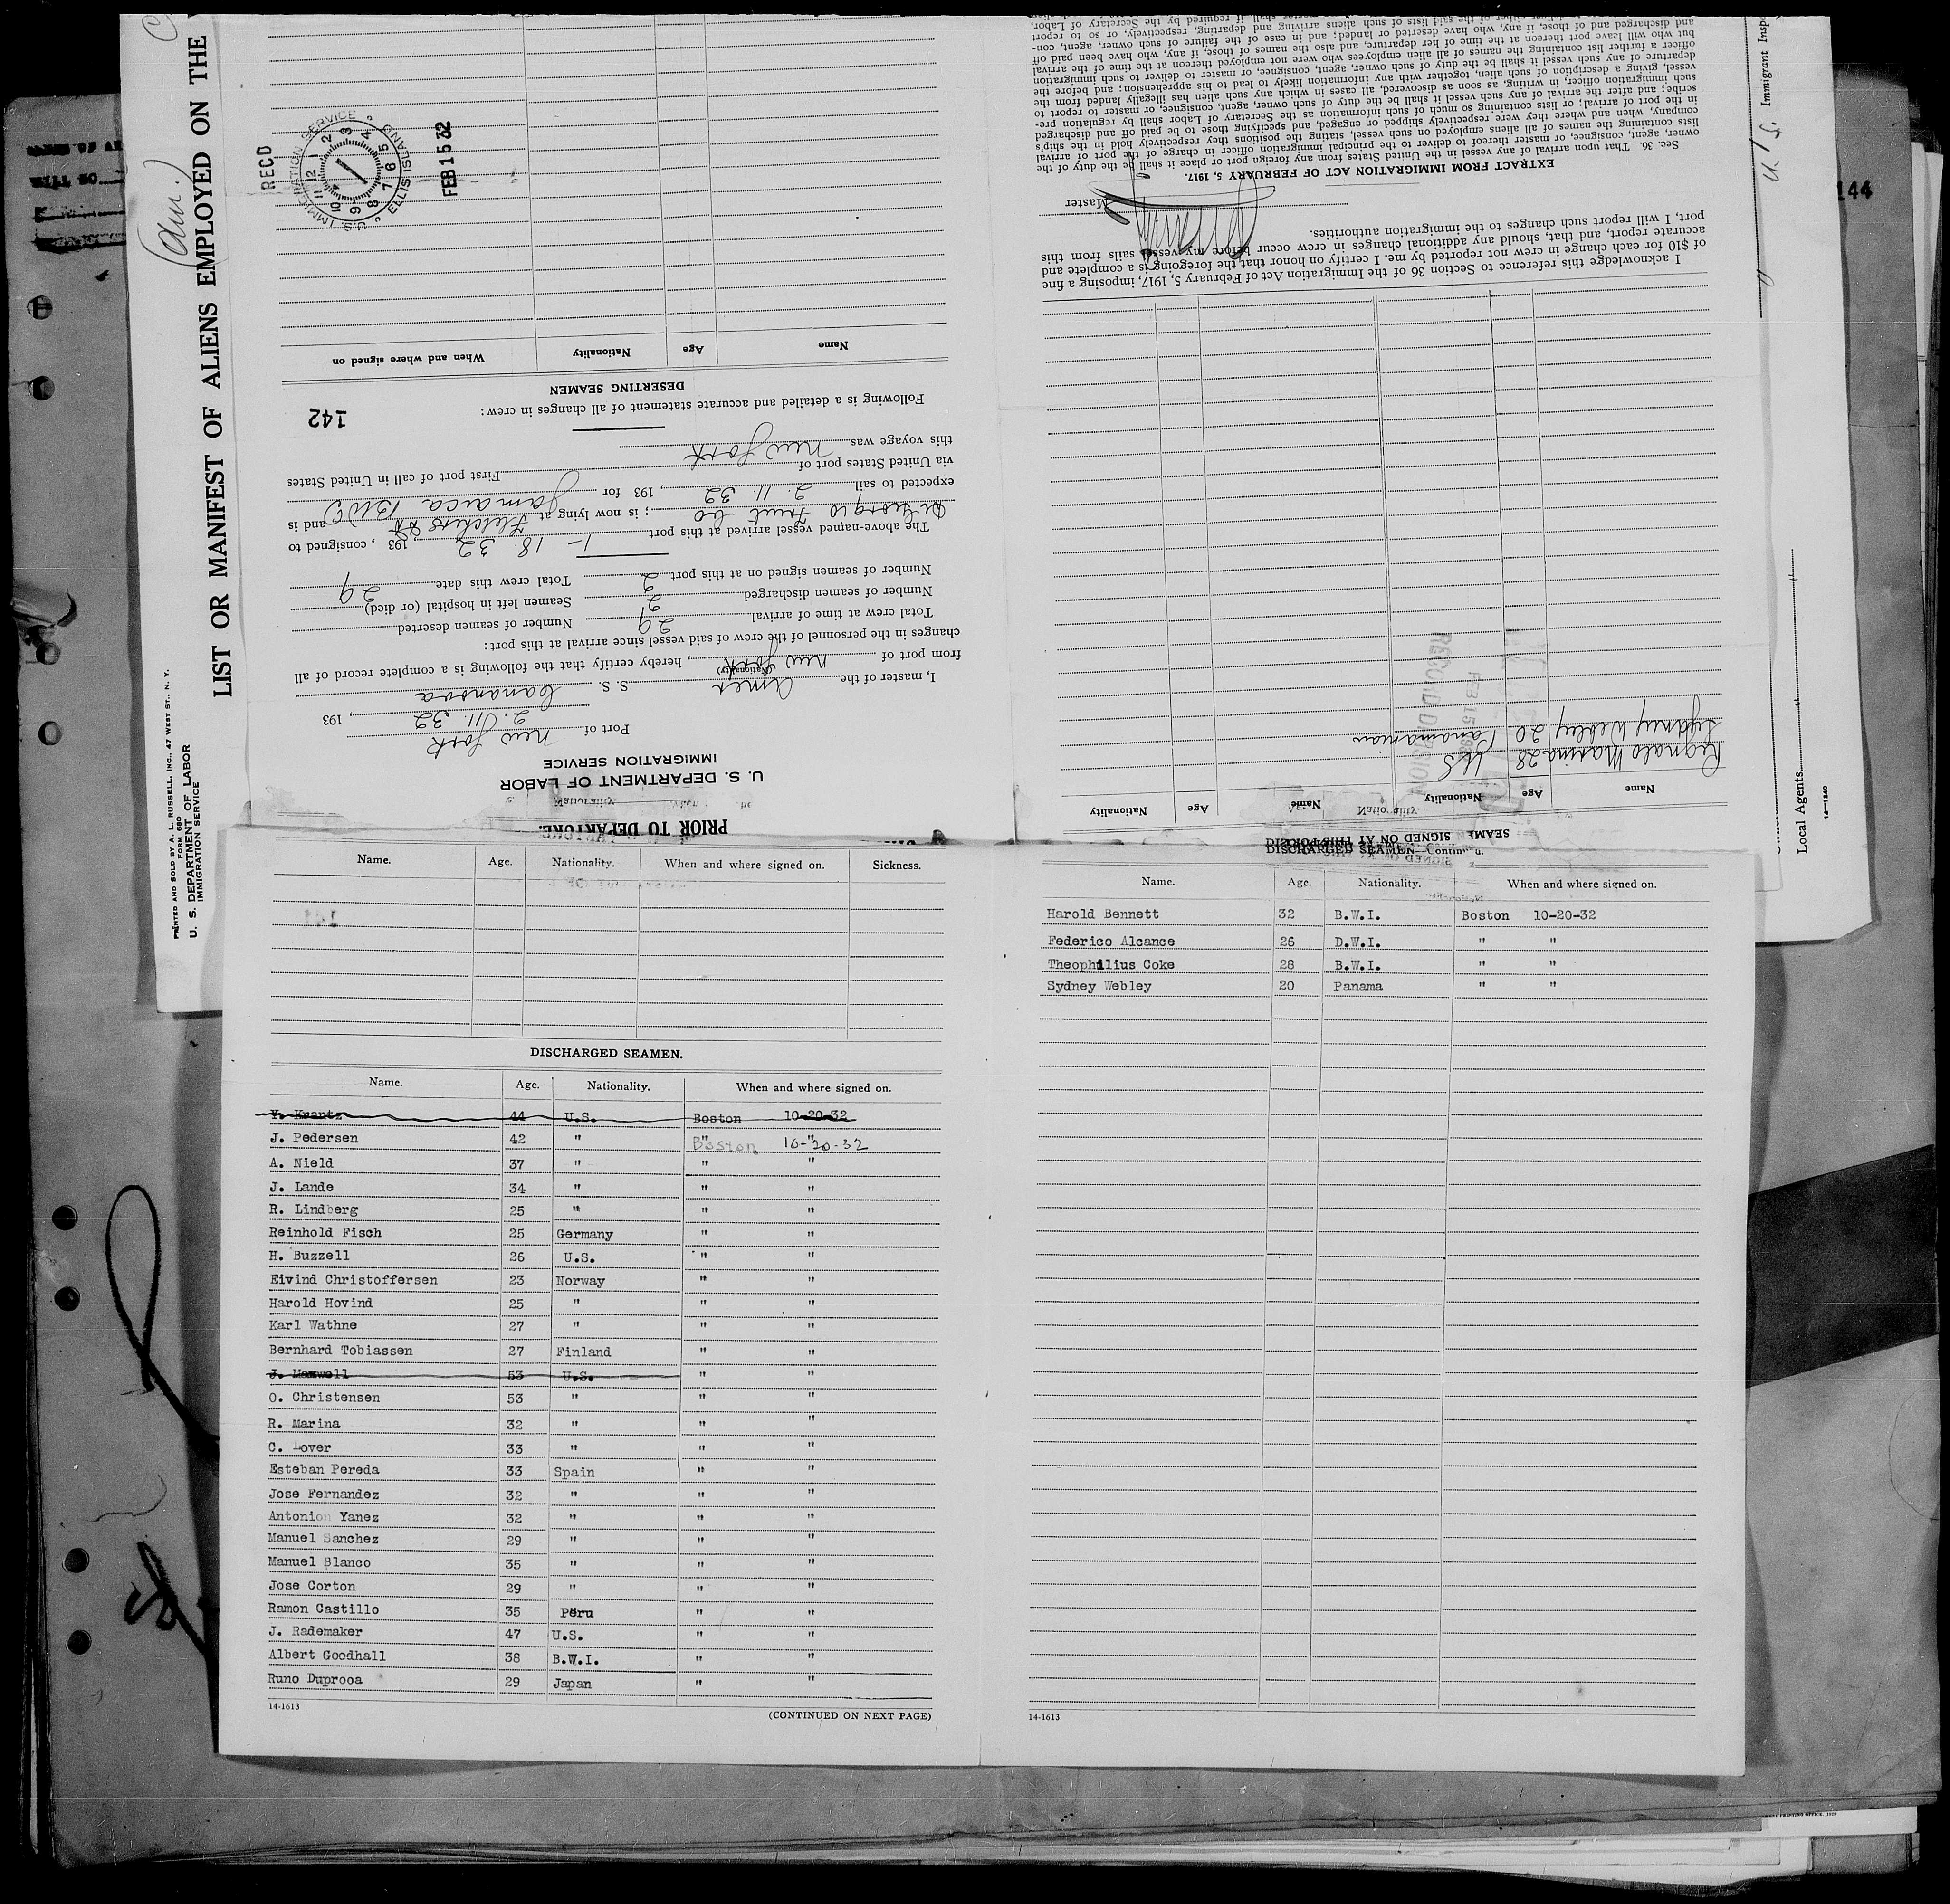 LIST OR MANIFEST OF ALIENS EMPLOYED ON THE
PRINTED AND SOLD BY A. L. RUSSELL, INC., 47 WEST ST., N. Y.
FORM 680
U. S. DEPARTMENT OF LABOR
IMMIGRATION SERVICE
144
U.S. Immigrant Insp
Local Agents
14-1240
PRIOR TO DEPARTURE.
U. S. DEPARTMENT OF LABOR
IMMIGRATION SERVICE
Port of New York
2. 11. 32, 193
I, master of the Amer S. S. Cananova
(Nationality)
from port of New York, hereby certify that the following is a complete record of all
changes in the personnel of the crew of said vessel since arrival at this port:
Total crew at time of arrival 29 Number of seamen deserted
Number of seamen discharged 2 Seamen left in hospital (or died)
Number of seamen signed on at this port 2 Total crew this date 29
The above-named vessel arrived at this port 1- 18. 32, 193 , consigned to
Di Giorgio Fruit Co ; is now lying at Fletchers and is
expected to sail 2. 11. 32, 193 for Jamaica BWI
via United States port of First port of call in United States
this voyage was New York
142
Following is a detailed and accurate statement of all changes in crew:
DESERTING SEAMEN
Name Age Nationality When and where signed on
RECD
U.S. IMMIGRATION SERVICE ELLIS ISLAND
1 2 3 4 5 6 7 8 9 10 11 12
FEB 15 32
SEAMEN SIGNED ON AT THIS PORT
Name Age Nationality Name Age Nationality
Reginald Marina 28 U.S
Sydney Webley 20 Panamanian
FEB 15 1932
RECORD DIVISION
I acknowledge this reference to Section 36 of the Immigration Act of February 5, 1917, imposing a fine
of $10 for each change in crew not reported by me. I certify on honor that the foregoing is a complete and
accurate report, and that, should any additional changes in crew occur before my vessel sails from this
port, I will report such changes to the immigration authorities.
Master
EXTRACT FROM IMMIGRATION ACT OF FEBRUARY 5, 1917.
Sec. 36. That upon arrival of any vessel in the United States from any foreign port or place it shall be the duty of the
owner, agent, consignee, or master thereof to deliver to the principal immigration officer in charge of the port of arrival
lists containing the names of all aliens employed on such vessel, stating the positions they respectively hold in the ship's
company, when and where they were respectively shipped or engaged, and specifying those to be paid off and discharged
in the port of arrival; or lists containing so much of such information as the Secretary of Labor shall by regulation pre-
scribe; and after the arrival of any such vessel it shall be the duty of such owner, agent, consignee, or master to report to
such immigration officer, in writing, as soon as discovered, all cases in which any such alien has illegally landed from the
vessel, giving a description of such alien, together with any information likely to lead to his apprehension; and before the
departure of any such vessel it shall be the duty of such owner, agent, consignee, or master to deliver to such immigration
officer a further list containing the names of all alien employees who were not employed thereon at the time of the arrival
but who will leave port thereon at the time of her departure, and also the names of those, if any, who have been paid off
and discharged and of those, if any, who have deserted or landed; and in case of the failure of such owner, agent, con-
Name. Age. Nationality. When and where signed on. Sickness.
141
DISCHARGED SEAMEN.
Name. Age. Nationality. When and where signed on.
Y. Krantz 44 U.S. Boston 10-20-32
J. Pedersen 42 " Boston 10-20-32
A. Nield 37 " " "
J. Lande 34 " " "
R. Lindberg 25 " " "
Reinhold Fisch 25 Germany " "
H. Buzzell 26 U.S. " "
Eivind Christoffersen 23 Norway " "
Harold Hovind 25 " " "
Karl Wathne 27 " " "
Bernhard Tobiassen 27 Finland " "
J. Maxwell 53 U.S. " "
O. Christensen 53 " " "
R. Marina 32 " " "
C. Lover 33 " " "
Esteban Pereda 33 Spain " "
Jose Fernandez 32 " " "
Antonion Yanez 32 " " "
Manuel Sanchez 29 " " "
Manuel Blanco 35 " " "
Jose Corton 29 " " "
Ramon Castillo 35 Peru " "
J. Rademaker 47 U.S. " "
Albert Goodhall 38 B.W.I. " "
Runo Duprooa 29 Japan " "
14-1613
(CONTINUED ON NEXT PAGE)
DISCHARGED SEAMEN—Continued.
Name. Age. Nationality. When and where signed on.
Harold Bennett 32 B.W.I. Boston 10-20-32
Federico Alcance 26 D.W.I. " "
Theophilius Coke 28 B.W.I. " "
Sydney Webley 20 Panama " "
14-1613